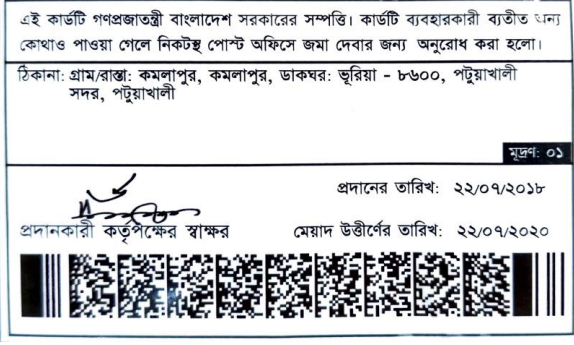 এই কার্ডটি গণপ্রজাতন্ত্রী বাংলাদেশ সরকারের সম্পত্তি। কার্ডটি ব্যবহারকারী ব্যতীত অন্য
কোথাও পাওয়া গেলে নিকটস্থ পোস্ট অফিসে জমা দেবার জন্য অনুরোধ করা হলো।
ঠিকানা: গ্রাম/রাস্তা: কমলাপুর, কমলাপুর, ডাকঘর: ভূরিয়া - ৮৬০০, পটুয়াখালী
সদর, পটুয়াখালী
মূদ্রণ: ০১
প্রদানের তারিখ: ২২/০৭/২০১৮
প্রদানকারী কর্তৃপক্ষের স্বাক্ষর
মেয়াদ উত্তীর্ণের তারিখ: ২২/০৭/২০২০